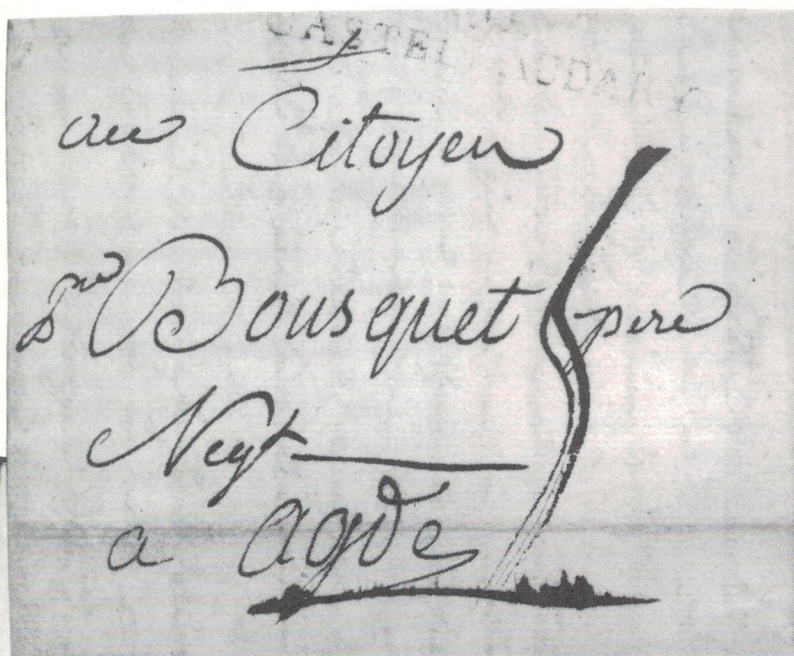 CASTELNAUDARY
au Citoyen
Pre Bousquet père
Negt
a agde